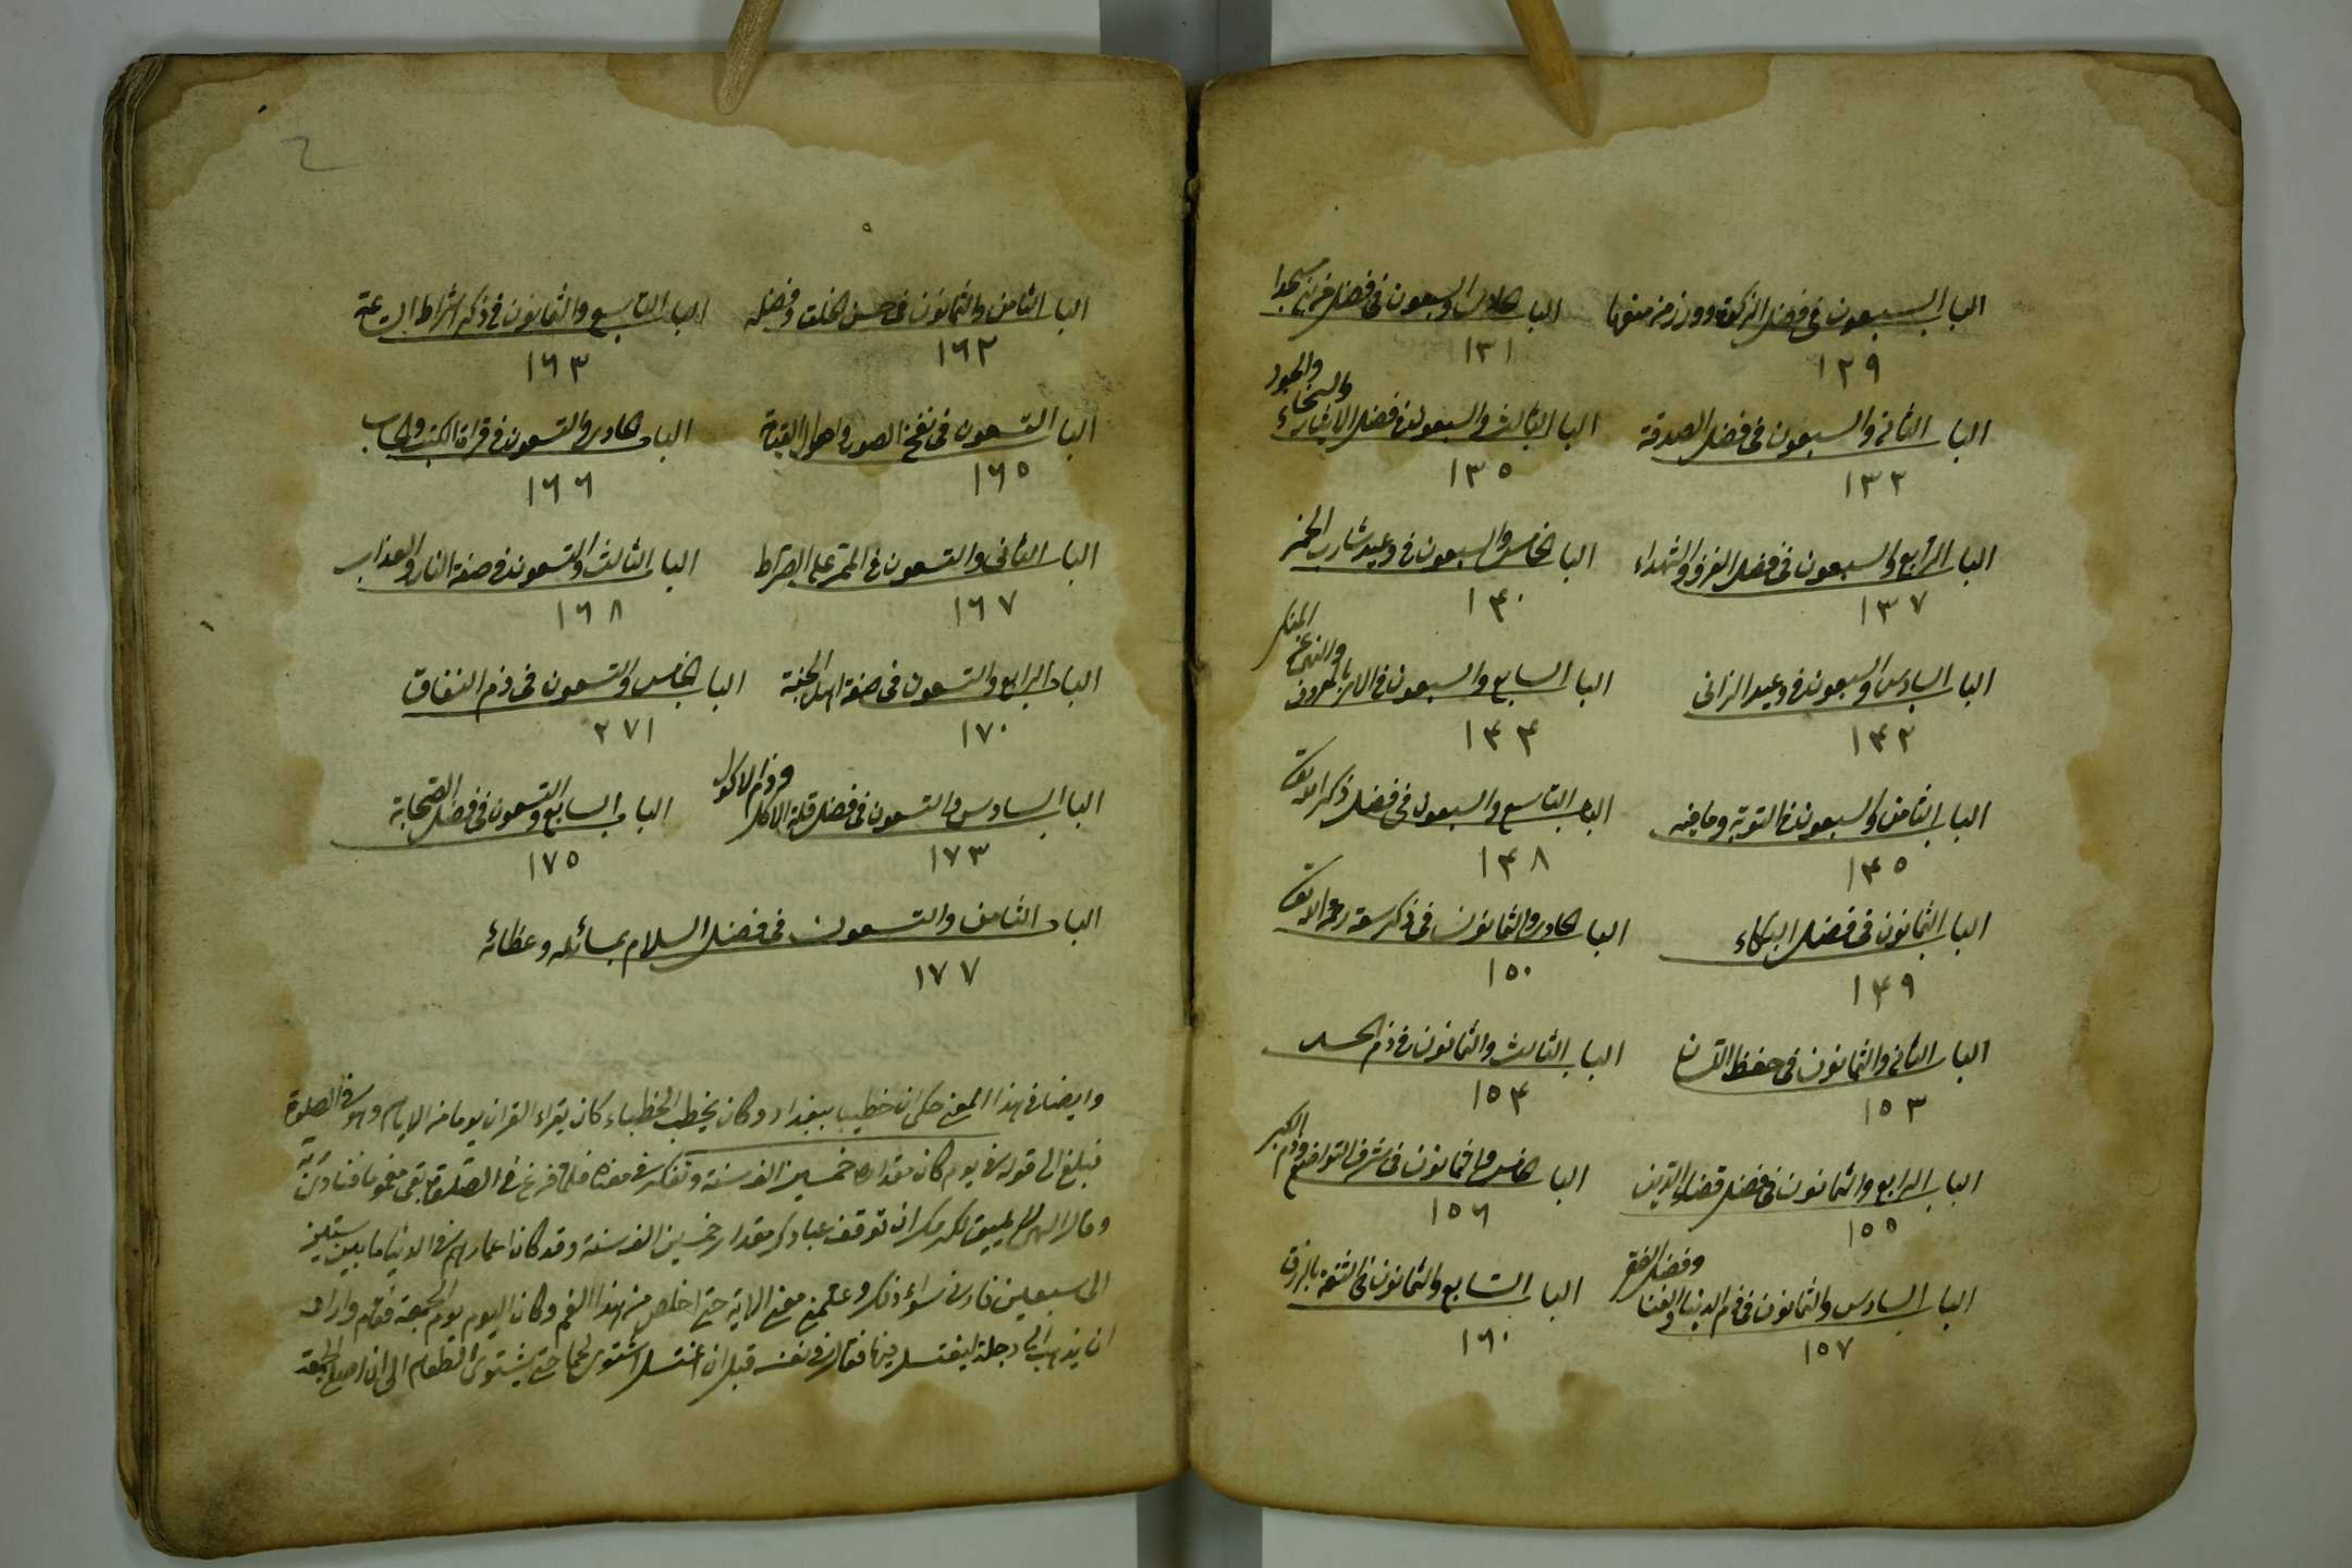 الباب السبعون فى فضل الزكوة ووزر من منعها
١٢٩
الباب الحادى والسبعون فى فضل من بنى مسجدا
١٣١
الباب الثانى والسبعون فى فضل الصدقة
١٣٢
الباب الثالث والسبعون فى فضل الايثار والسخاء والجود
١٣٥
الباب الرابع والسبعون فى فضل الغزو والشهداء
١٣٧
الباب الخامس والسبعون فى وعيد شارب الخمر
١٤٠
الباب السادس والسبعون فى وعيد الزانى
١٤٢
الباب السابع والسبعون فى الامر بالمعروف والنهى عن المنكر
١٤٤
الباب الثامن والسبعون فى التوبة وما فيه
١٤٥
الباب التاسع والسبعون فى فضل ذكر الله تعا
١٤٨
الباب الثمانون فى فضل البكاء
١٤٩
الباب الحادى والثمانون فى ذكر سعة رحمة الله تعا
١٥٠
الباب الثانى والثمانون فى حفظ اللسان
١٥٣
الباب الثالث والثمانون فى ذم الحسد
١٥٤
الباب الرابع والثمانون فى فضل قضاء الدين
١٥٥
الباب الخامس والثمانون فى شرف التواضع وذم الكبر
١٥٦
الباب السادس والثمانون فى ذم الدنيا والغنا وفضل الفقر
١٥٧
الباب السابع والثمانون فى الثقة بالرزق
١٦٠
الباب الثامن والثمانون فى حسن الخلق وفضله
١٦٢
الباب التاسع والثمانون فى ذكر اشراط الساعة
١٦٣
الباب التسعون فى نفخ الصور واهوال القيمة
١٦٥
الباب الحادى والتسعون فى قراة الكتب والحساب
١٦٦
الباب الثانى والتسعون فى الممر على الصراط
١٦٧
الباب الثالث والتسعون فى صفة النار والعذاب
١٦٨
الباب الرابع والتسعون فى صفة اهل الجنة
١٧٠
الباب الخامس والتسعون فى ذم النفاق
٢٧١
الباب السادس والتسعون فى فضل قلة الاكل وذم الاكول
١٧٣
الباب السابع والتسعون فى فضل الصحابة
١٧٥
الباب الثامن والتسعون فى فضل السلام بمسائله وعظائه
١٧٧
وايضا فى هذا المعنى حكى ان خطيب ببغداد وكان يخطب الخطباء كان يقراء القران يوما من الايام وهو فى الصلوة
فبلغ الى قوله فى يوم كان مقداره خمسين الف سنة وتفكر فى معناه فلما فرغ من الصلوة بقى مغموما فنادى
وقال الهى يليق بكرمك ان توقف عبادك مقدار خمسين الف سنة وقد كان اعمارهم فى الدنيا ما بين ستين
الى سبعين وذكر وعلمنى معنى الاية حتى اخلص من هذا الغم وكان اليوم يوم الجمعة فقام واراد
ان يذهب الى دجلة ليغتسل فيها فقال فى نفسه قبل ان اغتسل اشتوى لحما حتى يشتوى الطعام الى ان اصلى الجمعة